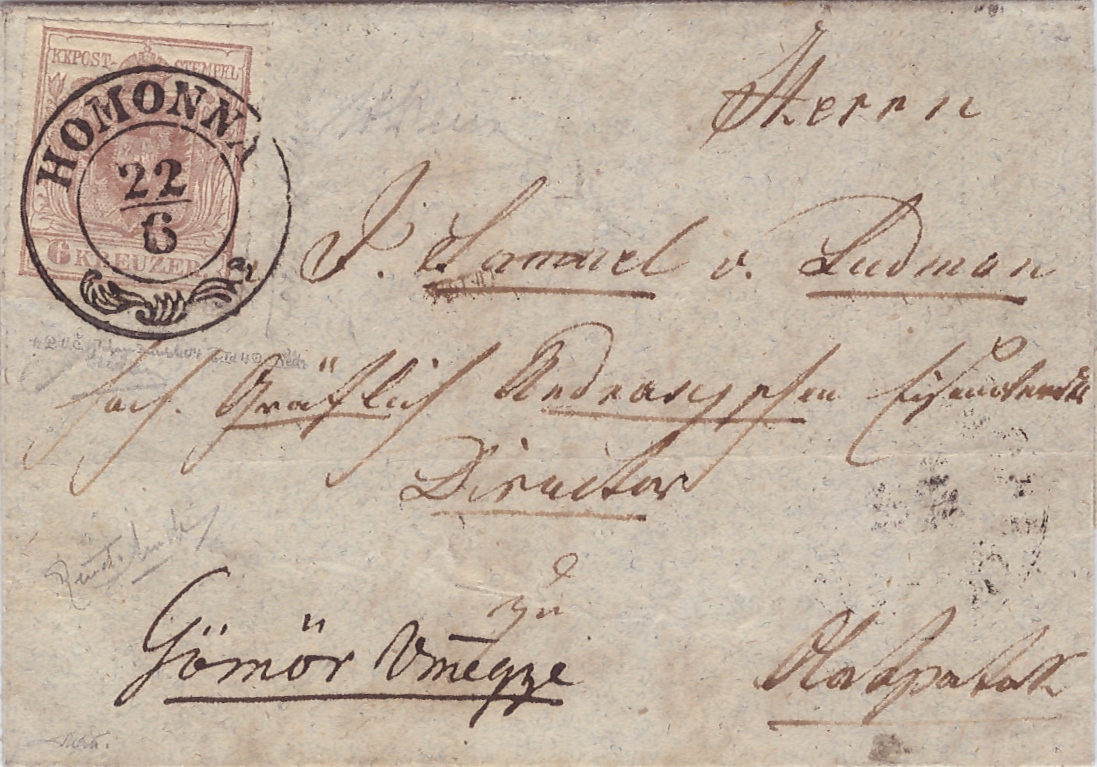 KKPOST-STEMPEL
HOMONNA
22
6
6 KREUZER
Herrn
J. Samuel v. Ludman
hoch. Gräflich Andrassyschen
Director
zu
Gömör Vmegye
Olahpatak